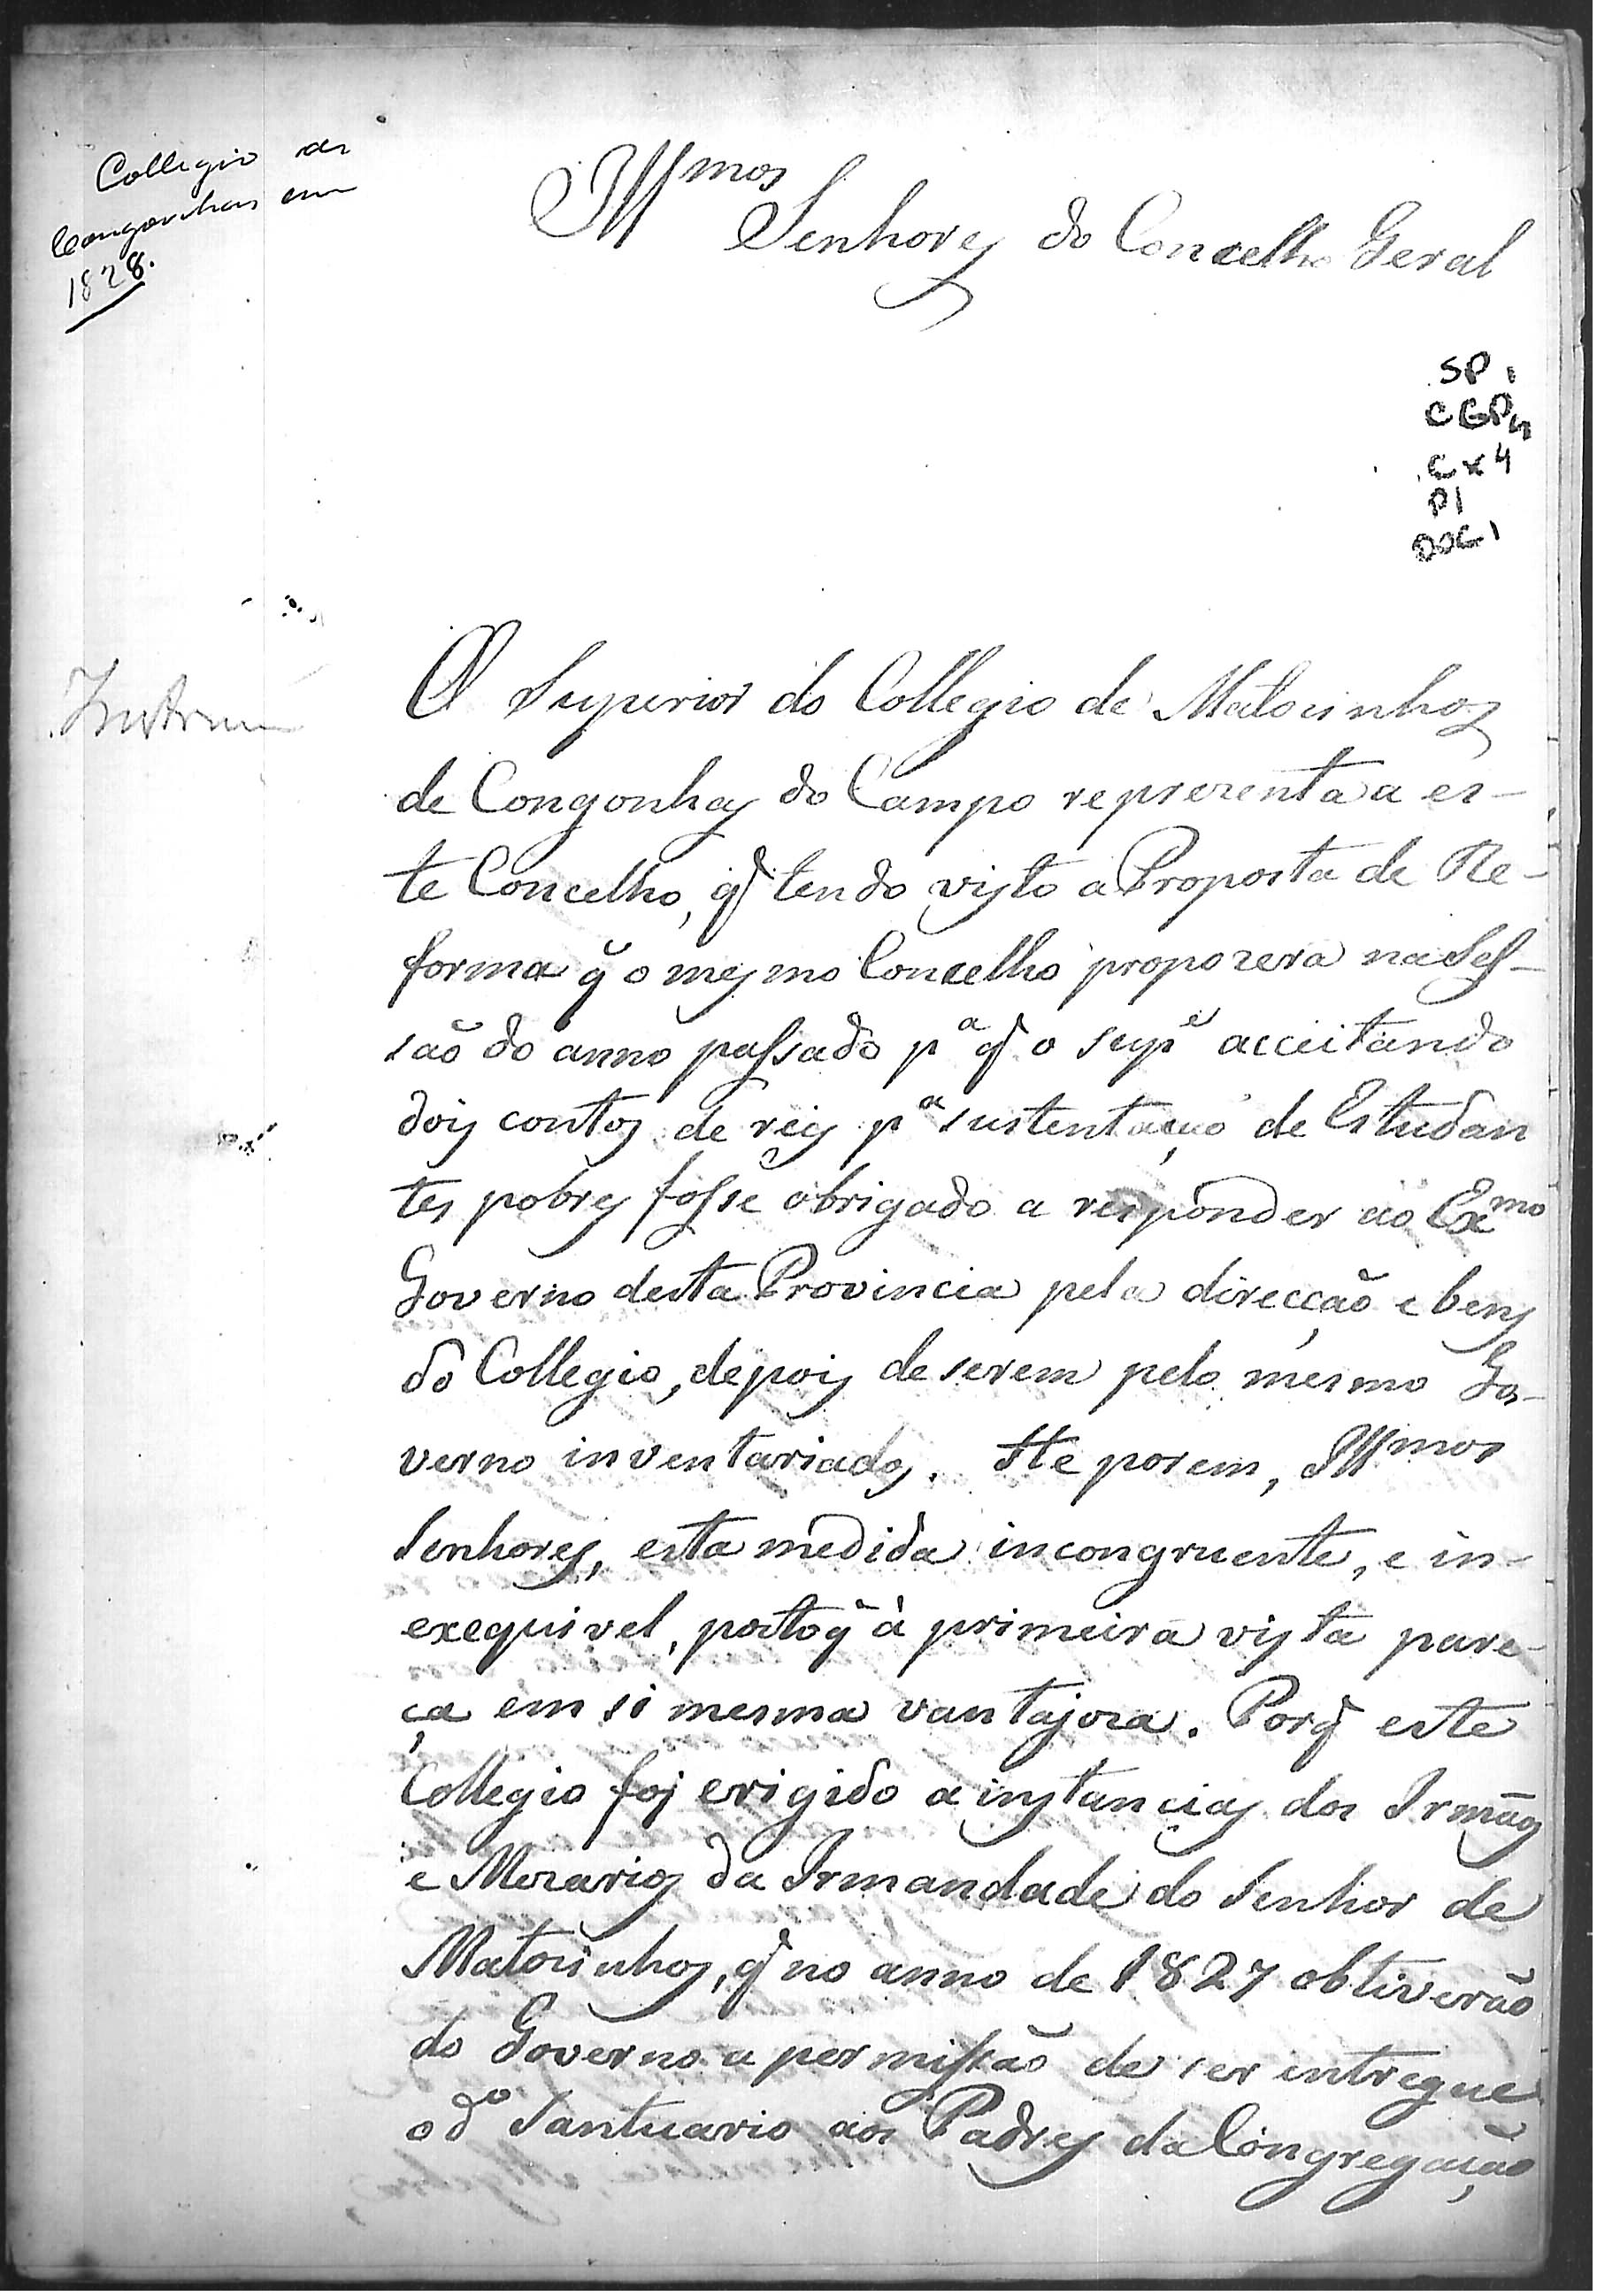 Collegio de
Congonhas em
1828.
Illmos
Senhores do Concelho Geral
SP 1
CGP4
Cx 4
P1
DOC 1
O Superior do Collegio de Matosinhos
de Congonhas do Campo reprezenta a es-
te Concelho, q̃ tendo visto a Proposta de Re-
forma q̃ o mesmo Concelho propozera na Ses-
são do anno passado pª q̃ o supᵉ acceitando
dois contos de reis pª sustentação de Estudan
tes pobres fosse obrigado a responder ao Exmo
Governo desta Provincia pela direcção e bens
do Collegio, depois de serem pelo mesmo Go-
verno inventariados. He porem, Illmos
Senhores, esta medida incongruente, e in-
exequivel, postoq̃ à primeira vista pare-
ça em si mesma vantajoza. Porq̃ este
Collegio foi erigido a instancias dos Irmãos
e Mezarios da Irmandade do Senhor de
Matosinhos, q̃ no anno de 1827 obtiverão
do Governo a permissão de ser entregue
o dº Santuario aos Padres da Congregação